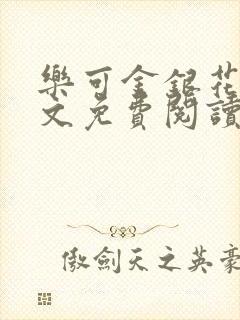 樂可金銀花
文免費閱讀
傲劍天之英豪